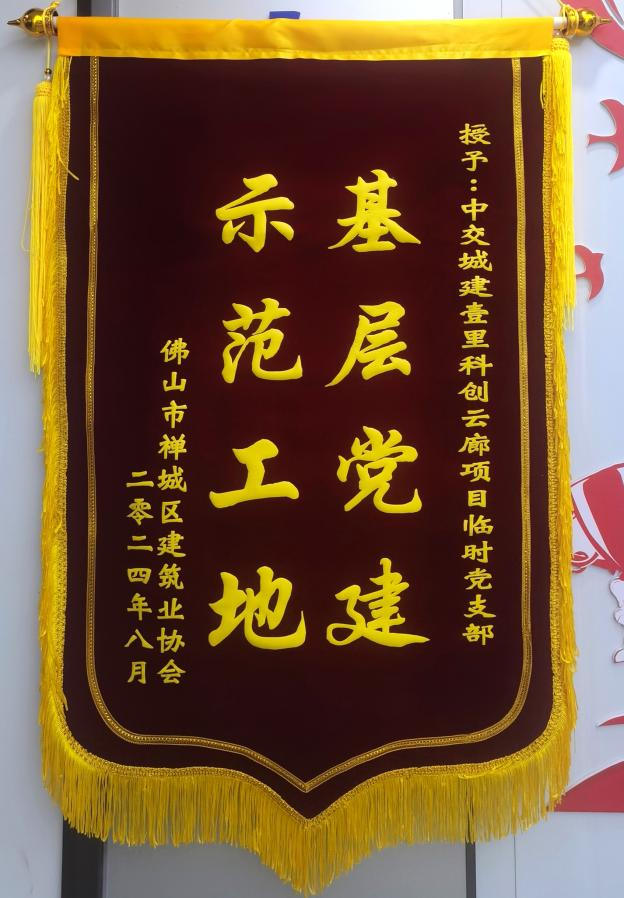 授予：中交城建壹里科创云廊项目临时党支部
基层党建
示范工地
佛山市禅城区建筑业协会
二零二四年八月